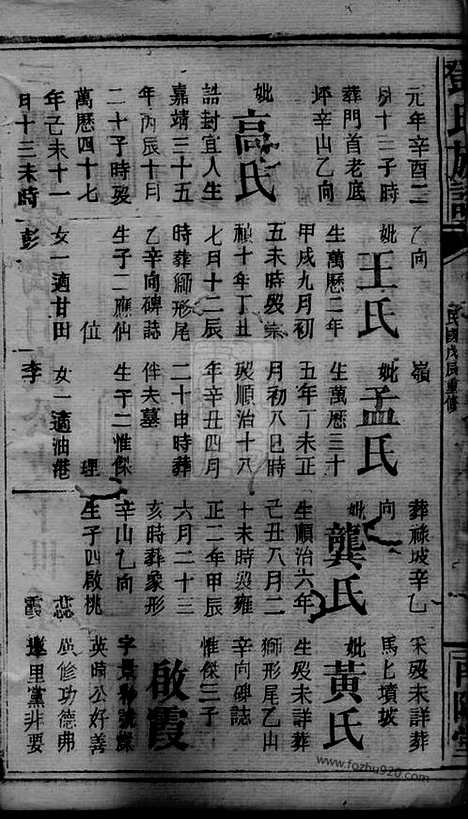 鄧氏族譜
民國戊辰重修
南陽堂
元年辛酉二
月十三子時
葬門首老底
坪辛山乙向
妣高氏
誥封宜人生
嘉靖三十五
年丙辰十月
二十子時歿
萬曆四十七
年己未十一
月十三未時
乙向
妣王氏
生萬曆二年
甲戌九月初
五未時歿崇
禎十年丁丑
七月十二辰
時葬獅形尾
乙辛向碑誌
生子二應仙
位
女一適甘田
彭
嶺
妣孟氏
生萬曆三十
五年丁未正
月初八巳時
歿順治十八
年辛丑四月
二十申時葬
伴夫墓
生子二惟傑
理
女一適油港
李
葬祿坡辛乙
向
妣龔氏
生順治六年
己丑八月二
十未時歿雍
正二年甲辰
六月二十三
亥時葬象形
辛山乙向
生子四啟桃
蕊
霞
采歿未詳葬
馬匕墳坡
妣黃氏
生歿未詳葬
獅形尾乙山
辛向碑誌
惟傑三子
啟霞
英時公好善
廣修功德弗
里黨非要
www.fozhu920.com